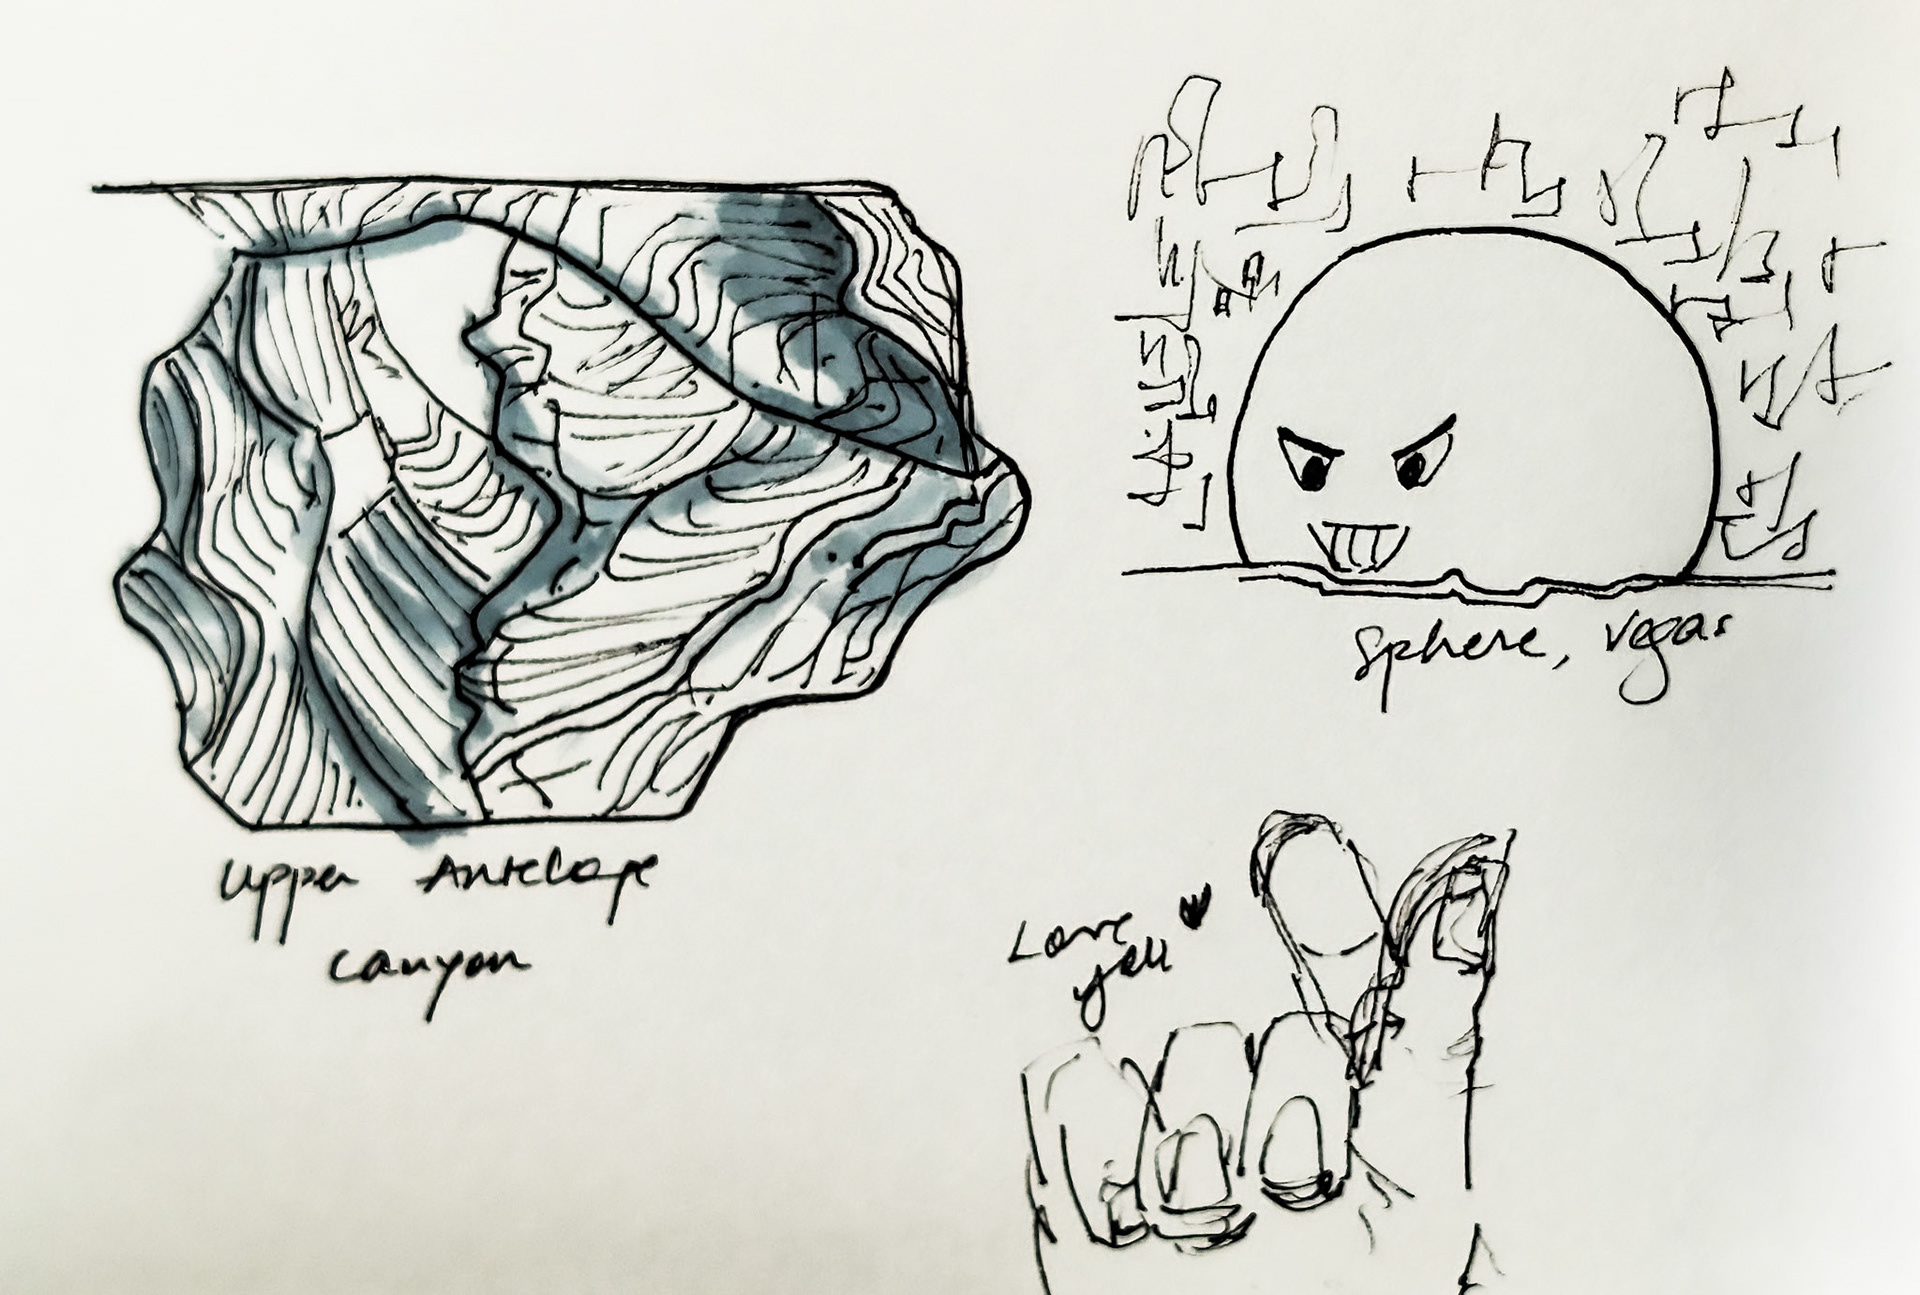 Upper Antelope
Canyon
Sphere, Vegas
Love
you